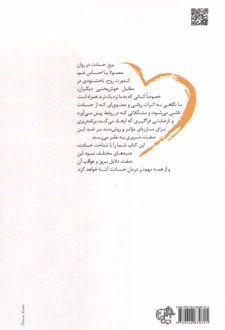 بروز حسادت در روان
معمولاً با احساس غم،
کدورت روح، ناخشنودی در
مقابل خوش‌بختی دیگران،
خصوصاً کسانی که به ما نزدیک‌ترند همراه است
با نگاهی به اثرات روانی و معنوی‌ای که از حسادت
ناشی می‌شود و مشکلاتی که در روابط پیش می‌آورد
و نارضایتی فراگیری که ایجاد می‌کند، برنامه‌ریزی
برای مبارزه‌ای مؤثر و روش‌مند بر ضد این
صفت، ضروری به نظر می‌رسد.
این کتاب شما را با شناخت حسادت،
جنبه‌های مختلف نمود این
صفت، دلایل بروز و عواقب آن
و از همه مهم‌تر درمان حسادت آشنا خواهد کرد.